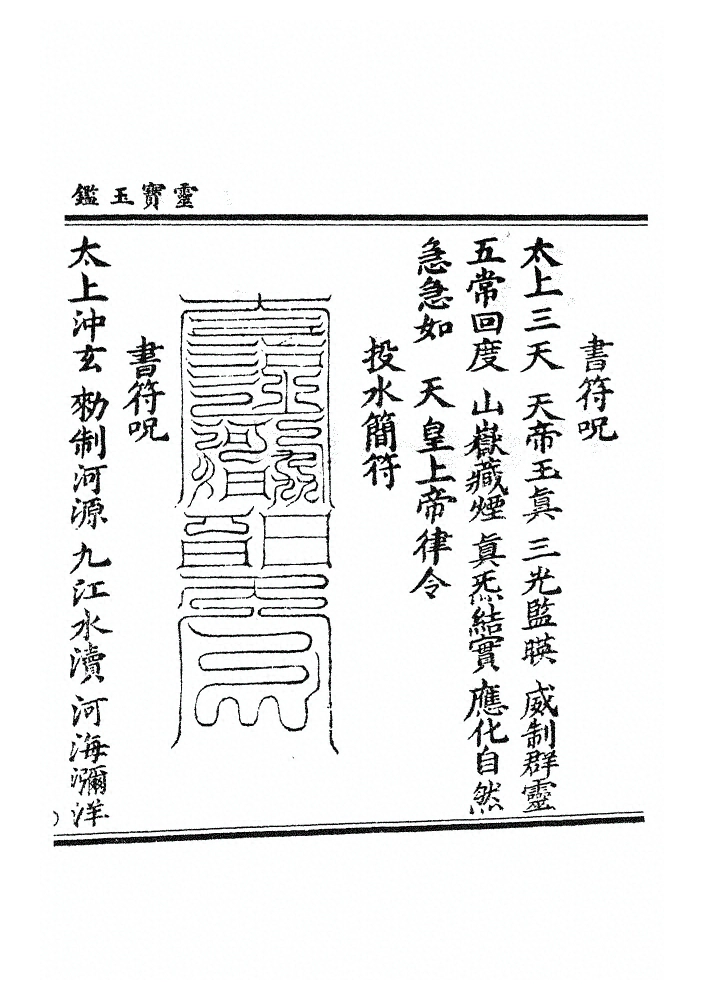 靈寶玉鑑
書符呪
太上三天　天帝玉眞　三光監暎　威制群靈
五常回度　山嶽藏煙　眞炁結實　應化自然
急急如　天皇上帝律令
投水簡符
書符呪
太上沖玄　勑制河源　九江水瀆　河海瀰洋